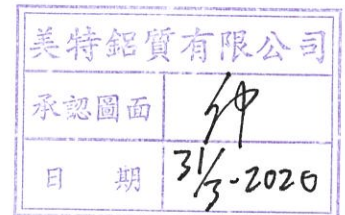 美特鋁質有限公司
承認圖面 仲
日 期 31/3-2020